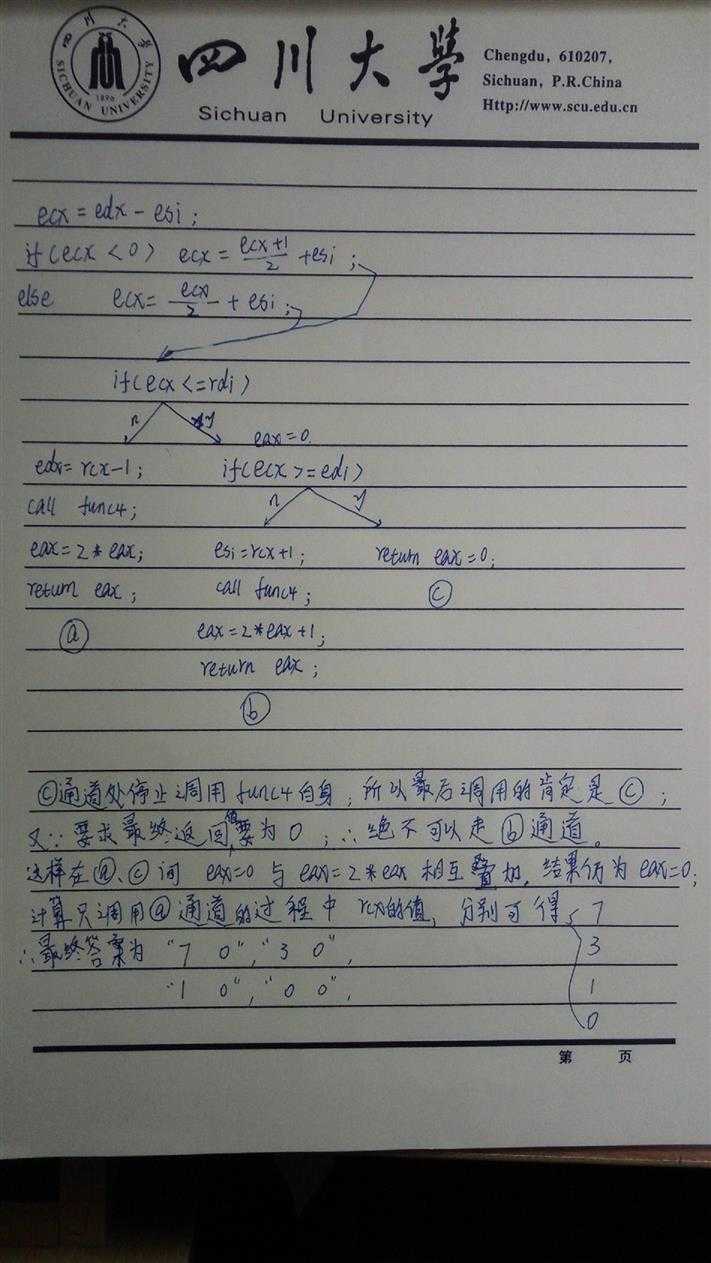 四川大學
Sichuan University
Chengdu, 610207,
Sichuan, P.R.China
Http://www.scu.edu.cn
四川大学
SICHUAN UNIVERSITY
1896
ecx = edx - esi;
if(ecx < 0) ecx = (ecx+1)/2 + esi;
else ecx = ecx/2 + esi;
if(ecx <= rdi)
n y
eax = 0.
edx = rcx-1; if(ecx >= edi)
call func4; n y
eax = 2*eax; esi = rcx+1; return eax = 0;
return eax; call func4; ⓒ
ⓐ eax = 2*eax+1;
return eax;
ⓑ
ⓒ通道处停止调用 func4 自身,所以最后调用的肯定是ⓒ;
又∵要求最终返回值要为0;∴绝不可以走ⓑ通道。
这样在ⓐ、ⓒ间 eax=0 与 eax=2*eax 相互叠加,结果仍为 eax=0;
计算只调用ⓐ通道的过程中 rcx的值,分别可得 7
∴最终答案为 "7 0","3 0", 3
"1 0","0 0", 1
0
第 页